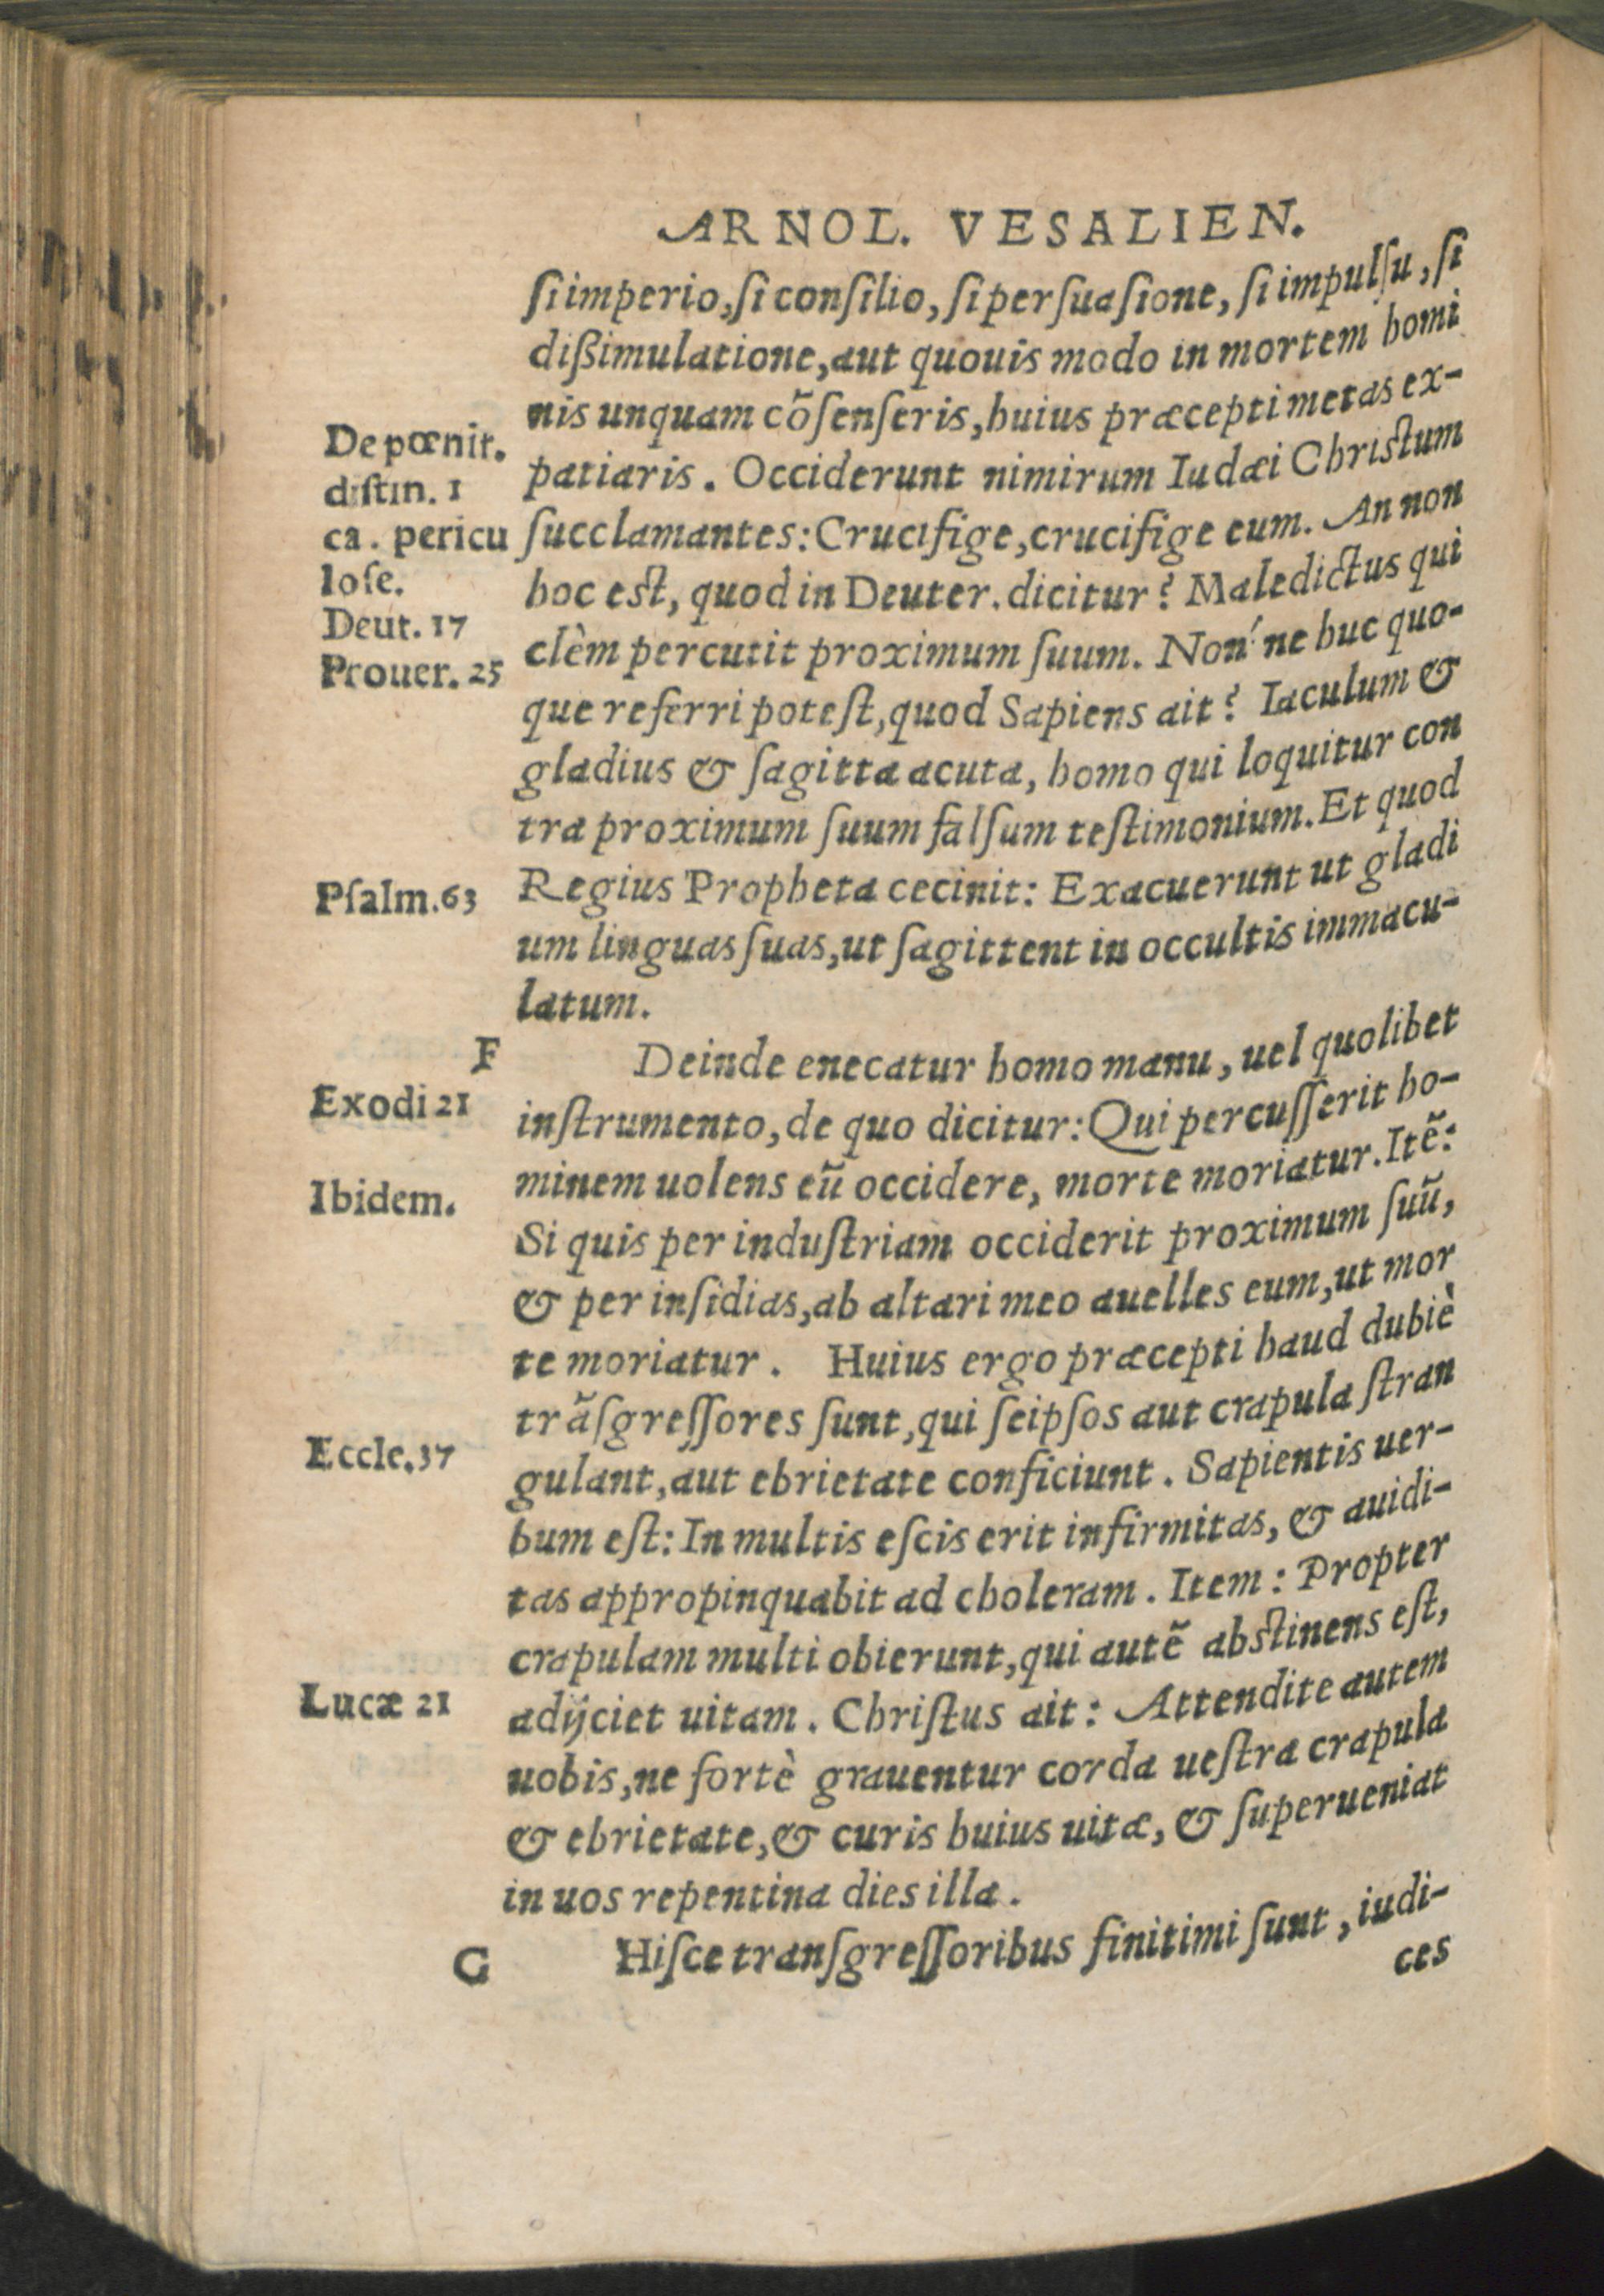 ARNOL. VESALIEN.
ſi imperio, ſi conſilio, ſi perſuaſione, ſi impulſu, ſi
dißimulatione, aut quouis modo in mortem homi
nis unquam cõſenſeris, huius præcepti metas ex-
patiaris. Occiderunt nimirum Iudæi Chriſtum
ſucclamantes: Crucifige, crucifige eum. An non
hoc eſt, quod in Deuter. dicitur? Maledictus qui
clèm percutit proximum ſuum. Non' ne huc quo-
que referri poteſt, quod Sapiens ait? Iaculum &
gladius & ſagitta acuta, homo qui loquitur con
tra proximum ſuum falſum teſtimonium. Et quod
Regius Propheta cecinit: Exacuerunt ut gladi
um linguas ſuas, ut ſagittent in occultis immacu-
latum.
De pœnit.
diſtin. 1
ca. pericu
loſe.
Deut. 17
Prouer. 25
Pſalm. 63
F
Deinde enecatur homo manu, uel quolibet
inſtrumento, de quo dicitur: Qui percuſſerit ho-
minem uolens eũ occidere, morte moriatur. Itẽ:
Si quis per induſtriam occiderit proximum ſuũ,
& per inſidias, ab altari meo auelles eum, ut mor
te moriatur. Huius ergo præcepti haud dubiè
trãſgreſſores ſunt, qui ſeipſos aut crapula ſtran
gulant, aut ebrietate conficiunt. Sapientis uer-
bum eſt: In multis eſcis erit infirmitas, & auidi-
tas appropinquabit ad choleram. Item: Propter
crapulam multi obierunt, qui autẽ abſtinens eſt,
adijciet uitam. Chriſtus ait: Attendite autem
uobis, ne fortè grauentur corda ueſtra crapula
& ebrietate, & curis huius uitæ, & ſuperueniat
in uos repentina dies illa.
Exodi 21
Ibidem.
Eccle. 37
Lucæ 21
G
Hiſce tranſgreſſoribus finitimi ſunt, iudi-
ces